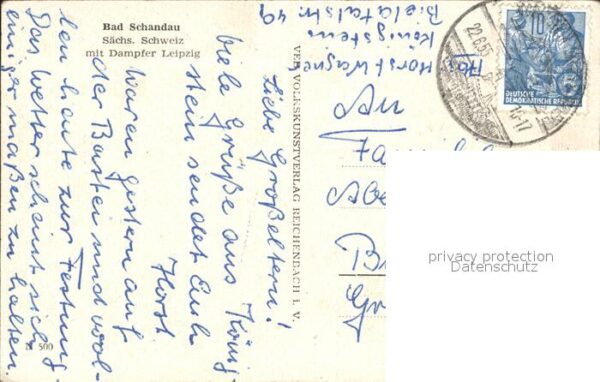 Bad Schandau
Sächs. Schweiz
mit Dampfer Leipzig
Horst Wagner
Königstein
Bielatalstr. 49
Liebe Großeltern!
Viele Grüße aus König-
stein sendet Euch
Horst
Waren gestern auf
der Bastei und wol-
len heute zur Festung
Das Wetter scheint sich
einigermaßen zu halten.
VEB VOLKSKUNSTVERLAG REICHENBACH I. V.
An
Fa
B
G
22.6.55
-17
10
DEUTSCHE
DEMOKRATISCHE REPUBLIK
500
privacy protection
Datenschutz